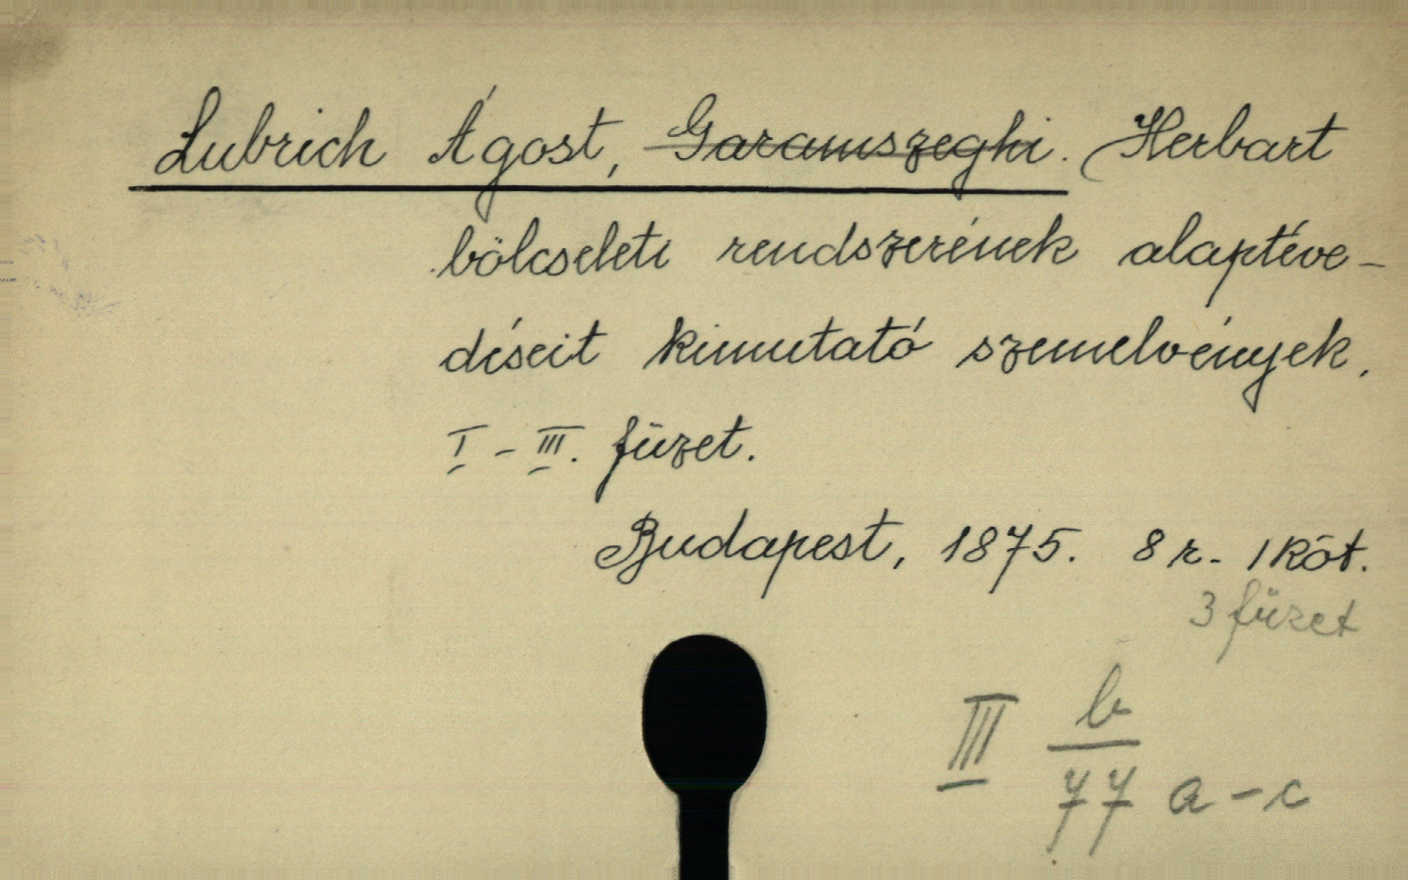 Lubrich Ágost, Garamszeghi. Herbart
bölcseleti rendszerének alaptéve-
déseit kimutató szemelvények.
I - III. füzet.
Budapest, 1875. 8 r. 1 köt.
3 füzet
III b
77 a-c